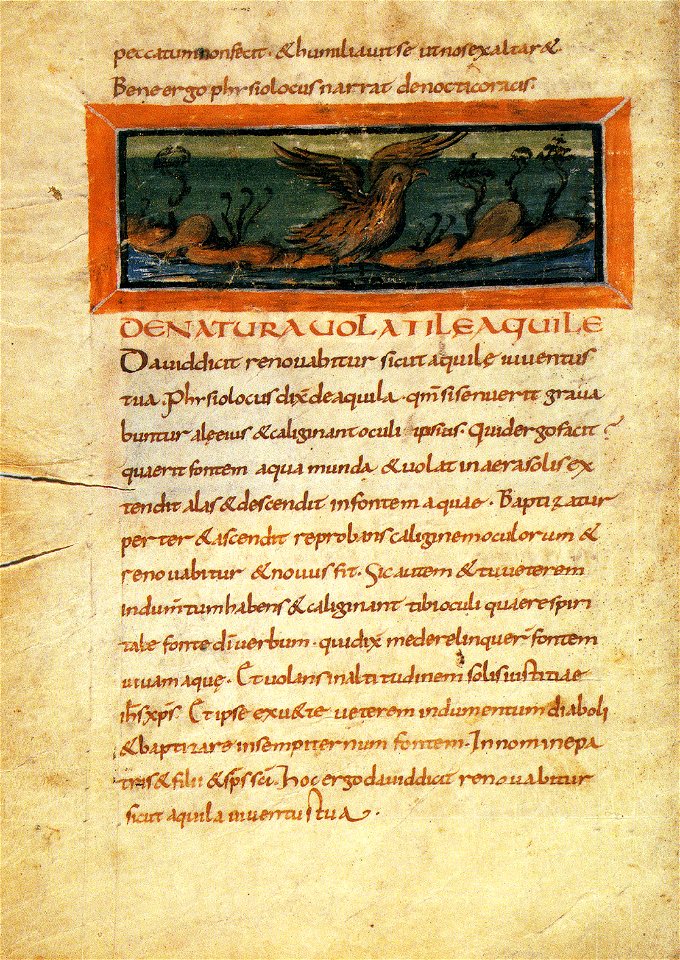 peccatum non fecit · & humiliavit se ut nos exaltar&
Bene ergo phisiolocus narrat de nocticoracis·
DE NATURA UOLATILE AQUILE
Dauid dicit renovabitur sicut aquilę iuventus
tua. Phisiolocus dix̅ de aquila · qm̅ si senuerit grava
buntur alę eius & caliginant oculi ipsius. Quid ergo facit ?
quaerit fontem aqua munda & volat in aera solis ex
tendit alas & descendit in fontem aquae · Baptizatur
per ter & ascendit reprobans caliginem oculorum &
renovabitur & novus fit · Sic autem & tu veterem
indum̅tum habens & caliginant tibi oculi quaere spiri
tale fonte di̅ verbum · qui dix̅ me derelinquer̅ fontem
vivam aquę · Et volans in altitudinem solis iustitiae
ih̅s xp̅s. Et ipse exu&te veterem indumentum diaboli
& baptizare in sempiternum fontem · In nomine pa
tris & filii & sp̅s sc̅i. Hoc ergo david dicit renovabitur
sicut aquila iuventus tua ·